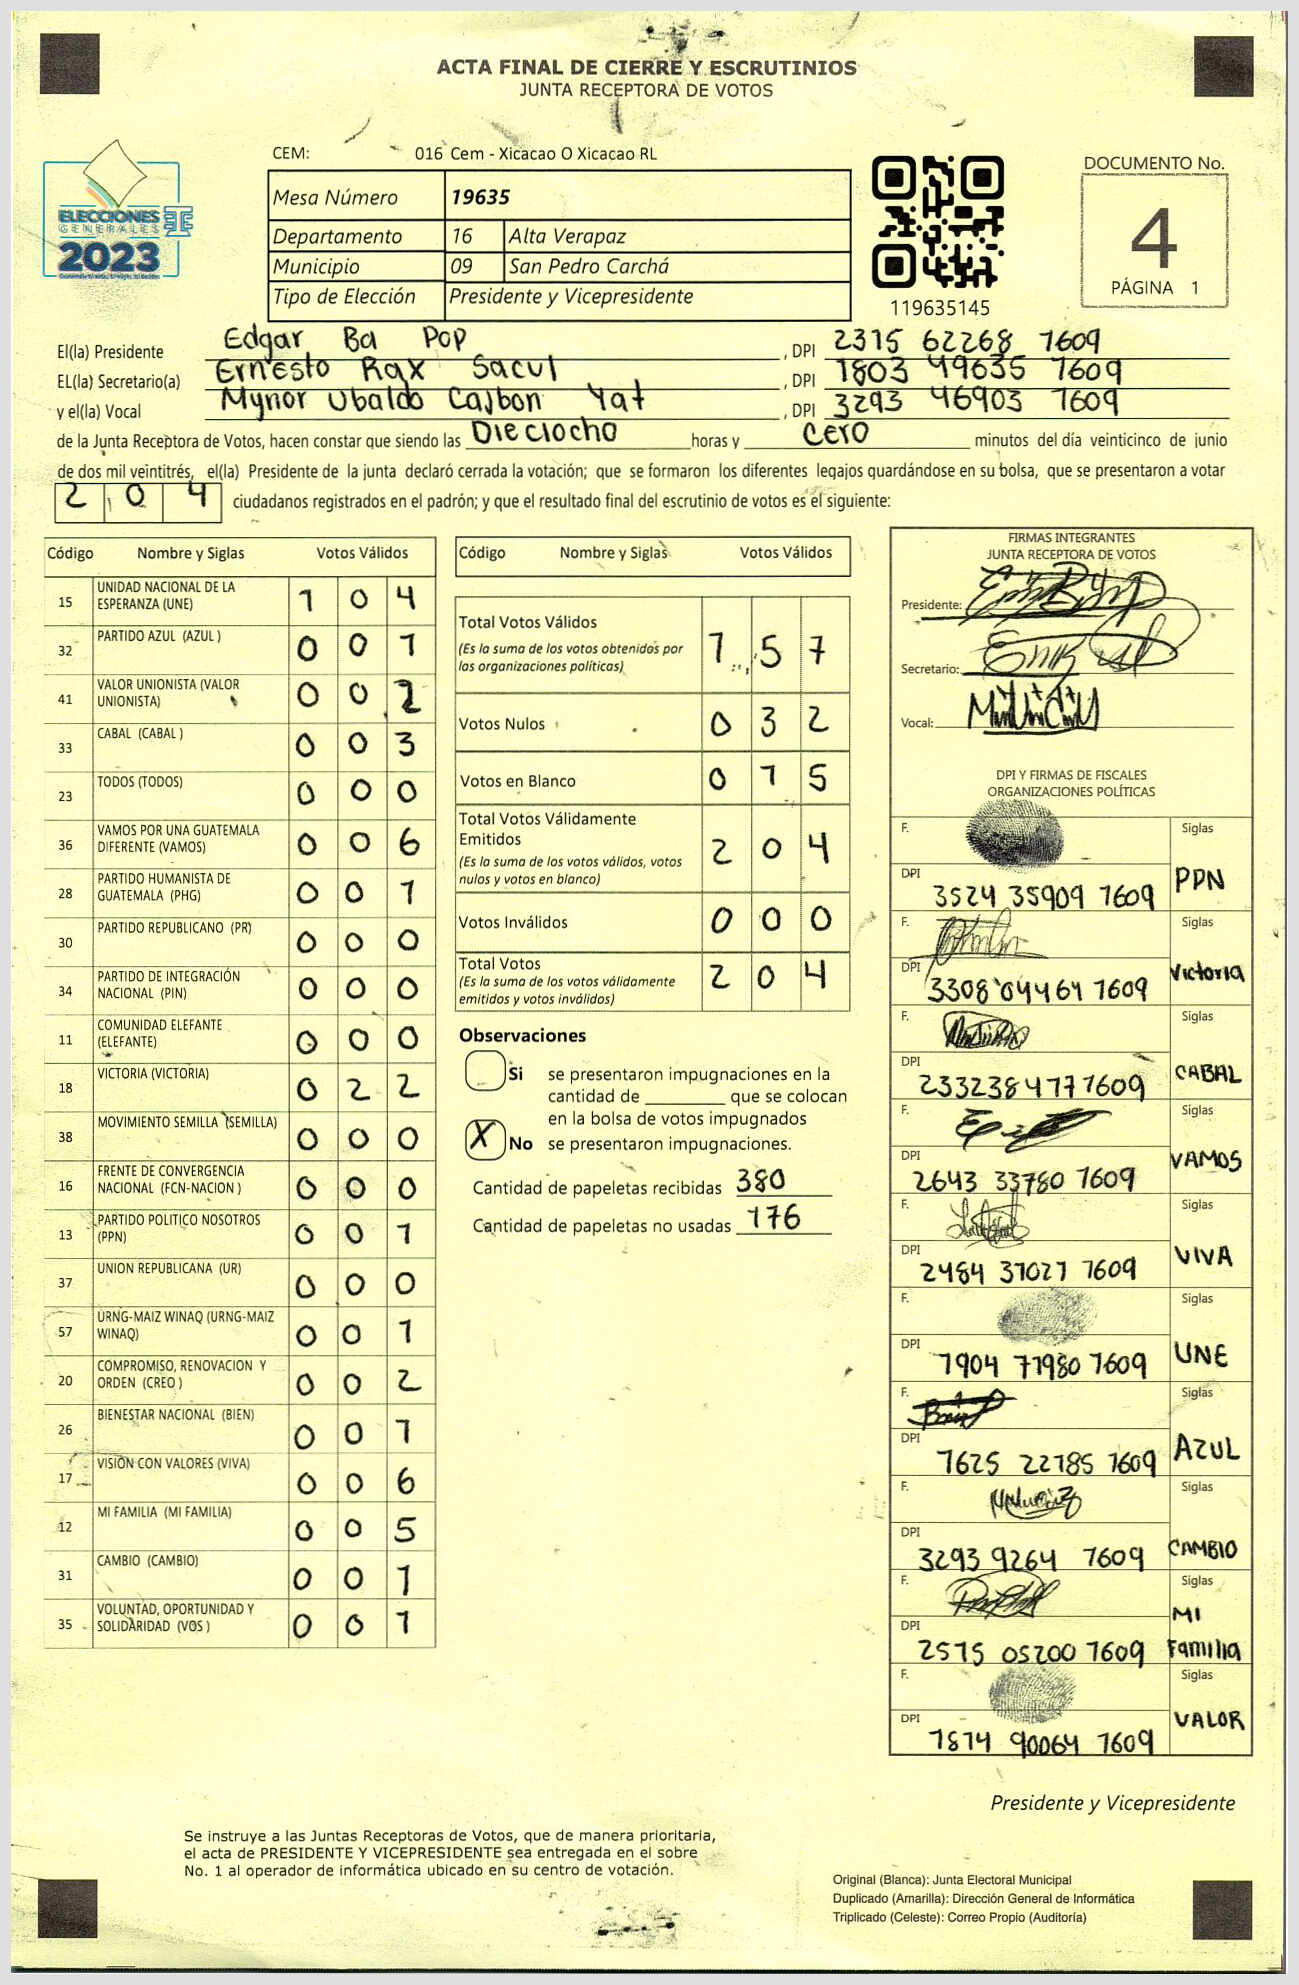 ACTA FINAL DE CIERRE Y ESCRUTINIOS
JUNTA RECEPTORA DE VOTOS
CEM: 016 Cem - Xicacao O Xicacao RL
ELECCIONES
GENERALES
2023
Mesa Número 19635
Departamento 16 Alta Verapaz
Municipio 09 San Pedro Carchá
Tipo de Elección Presidente y Vicepresidente
119635145
DOCUMENTO No.
4
PÁGINA 1
El(la) Presidente Edgar Ba Pop , DPI 2315 62268 1609
EL(la) Secretario(a) Ernesto Rax Sacul , DPI 1803 49635 1609
y el(la) Vocal Mynor Ubaldo Casbon Yat , DPI 3293 46903 1609
de la Junta Receptora de Votos, hacen constar que siendo las Dieciocho horas y cero minutos del día veinticinco de junio
de dos mil veintitrés, el(la) Presidente de la junta declaró cerrada la votación; que se formaron los diferentes legajos guardándose en su bolsa, que se presentaron a votar
2 0 4 ciudadanos registrados en el padrón; y que el resultado final del escrutinio de votos es el siguiente:
Código Nombre y Siglas Votos Válidos
15 UNIDAD NACIONAL DE LA ESPERANZA (UNE) 1 0 4
32 PARTIDO AZUL (AZUL ) 0 0 1
41 VALOR UNIONISTA (VALOR UNIONISTA) 0 0 2
33 CABAL (CABAL ) 0 0 3
23 TODOS (TODOS) 0 0 0
36 VAMOS POR UNA GUATEMALA DIFERENTE (VAMOS) 0 0 6
28 PARTIDO HUMANISTA DE GUATEMALA (PHG) 0 0 1
30 PARTIDO REPUBLICANO (PR) 0 0 0
34 PARTIDO DE INTEGRACIÓN NACIONAL (PIN) 0 0 0
11 COMUNIDAD ELEFANTE (ELEFANTE) 0 0 0
18 VICTORIA (VICTORIA) 0 2 2
38 MOVIMIENTO SEMILLA (SEMILLA) 0 0 0
16 FRENTE DE CONVERGENCIA NACIONAL (FCN-NACION ) 0 0 0
13 PARTIDO POLITICO NOSOTROS (PPN) 0 0 1
37 UNION REPUBLICANA (UR) 0 0 0
57 URNG-MAIZ WINAQ (URNG-MAIZ WINAQ) 0 0 1
20 COMPROMISO, RENOVACION Y ORDEN (CREO ) 0 0 2
26 BIENESTAR NACIONAL (BIEN) 0 0 1
17 VISION CON VALORES (VIVA) 0 0 6
12 MI FAMILIA (MI FAMILIA) 0 0 5
31 CAMBIO (CAMBIO) 0 0 1
35 VOLUNTAD, OPORTUNIDAD Y SOLIDARIDAD (VOS ) 0 0 1
Código Nombre y Siglas Votos Válidos
Total Votos Válidos
(Es la suma de los votos obtenidos por
las organizaciones políticas) 1 5 7
Votos Nulos 0 3 2
Votos en Blanco 0 1 5
Total Votos Válidamente
Emitidos
(Es la suma de los votos válidos, votos
nulos y votos en blanco) 2 0 4
Votos Inválidos 0 0 0
Total Votos
(Es la suma de los votos válidamente
emitidos y votos inválidos) 2 0 4
Observaciones
Si se presentaron impugnaciones en la
cantidad de ________ que se colocan
en la bolsa de votos impugnados
X No se presentaron impugnaciones.
Cantidad de papeletas recibidas 380
Cantidad de papeletas no usadas 176
FIRMAS INTEGRANTES
JUNTA RECEPTORA DE VOTOS
Presidente:
Secretario:
Vocal:
DPI Y FIRMAS DE FISCALES
ORGANIZACIONES POLÍTICAS
F. Siglas
DPI 3524 35909 1609 PPN
F. Siglas
DPI 3308 04464 1609 Victoria
F. Siglas
DPI 2332384771609 CABAL
F. Siglas
DPI 2643 33780 1609 VAMOS
F. Siglas
DPI 2484 31027 1609 VIVA
F. Siglas
DPI 1904 71980 1609 UNE
F. Siglas
DPI 1625 22185 1609 AZUL
F. Siglas
DPI 3293 9264 1609 CAMBIO
F. Siglas
DPI 2515 05200 1609 MI Familia
F. Siglas
DPI 1814 90064 1609 VALOR
Presidente y Vicepresidente
Se instruye a las Juntas Receptoras de Votos, que de manera prioritaria,
el acta de PRESIDENTE Y VICEPRESIDENTE sea entregada en el sobre
No. 1 al operador de informática ubicado en su centro de votación.
Original (Blanca): Junta Electoral Municipal
Duplicado (Amarilla): Dirección General de Informática
Triplicado (Celeste): Correo Propio (Auditoría)